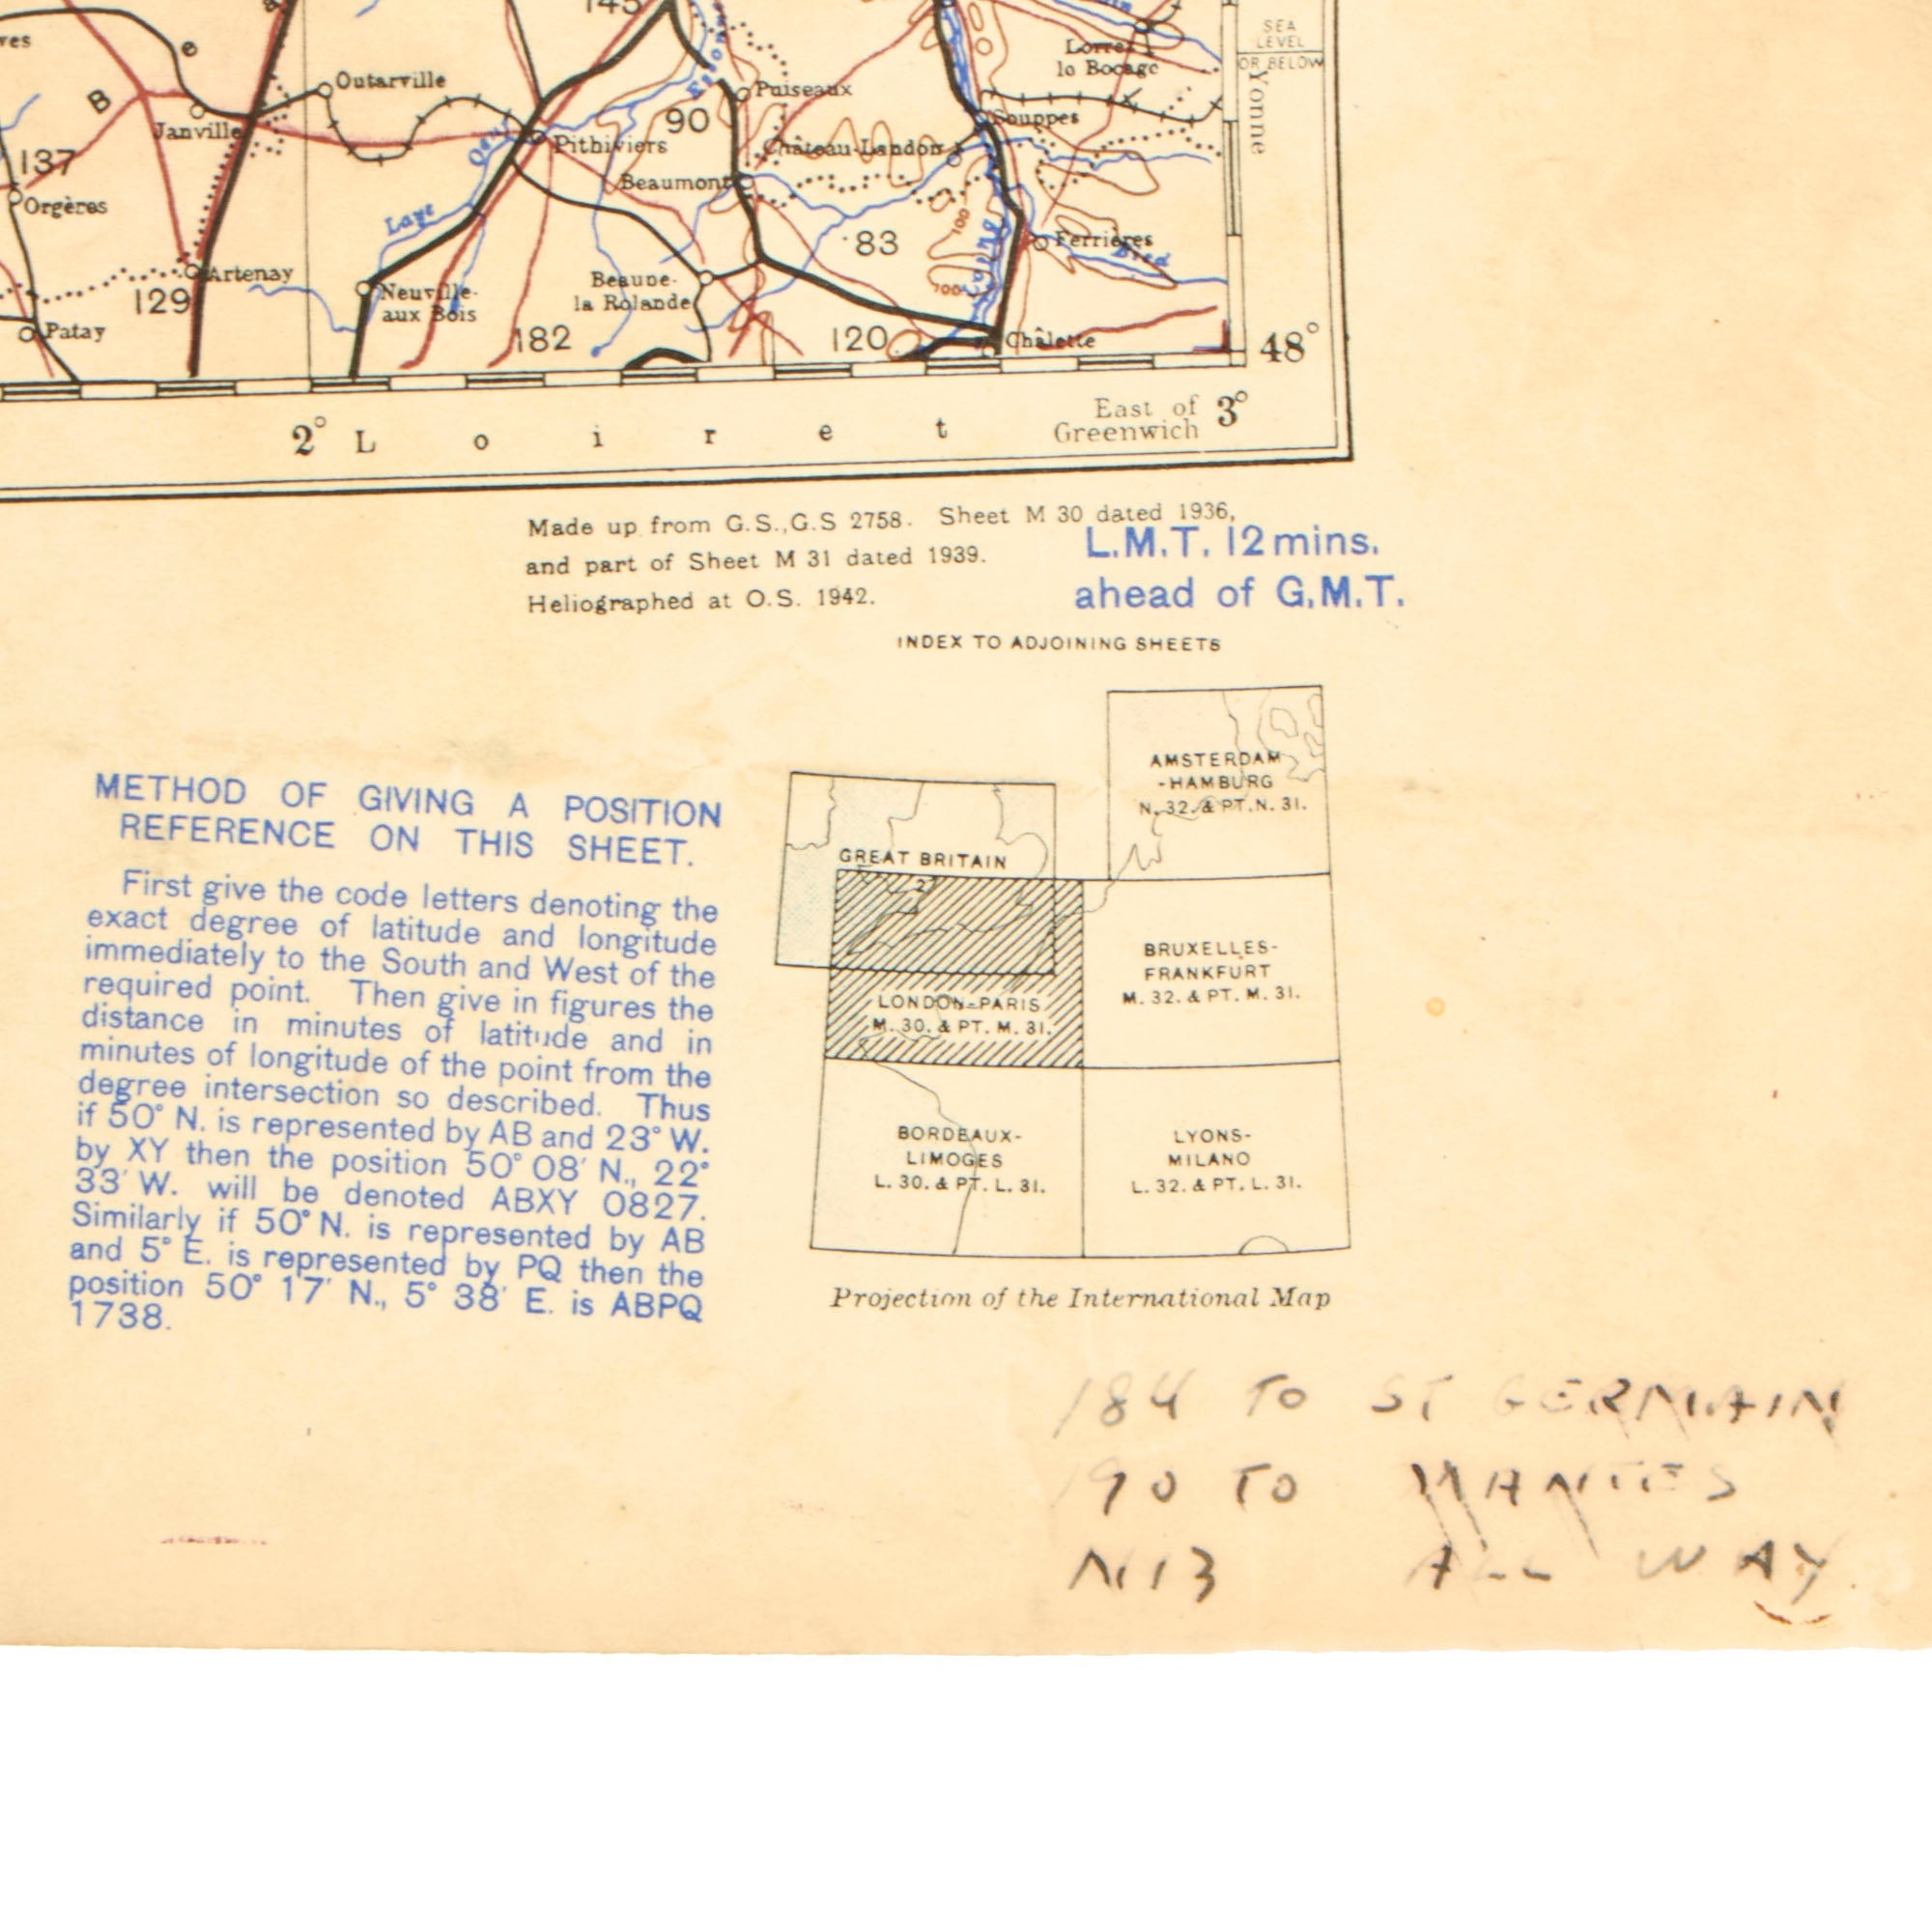 145
SEA
LEVEL
OR BELOW
Yonne
Lorrez
le Bocage
B
e
Outarville
Janville
Puiseaux
90
Souppes
Pithiviers
Château-Landon
137
Orgères
Beaumont
Essonne
Laye
83
Ferrières
Loing
100
100
Artenay
129
Neuville-
aux Bois
Beaune-
la Rolande
Patay
182
120
Châlette
48°
2° L o i r e t
East of
Greenwich 3°
Made up from G.S.,G.S 2758. Sheet M 30 dated 1936,
and part of Sheet M 31 dated 1939.
Heliographed at O.S. 1942.
L.M.T. 12mins.
ahead of G.M.T.
INDEX TO ADJOINING SHEETS
AMSTERDAM
-HAMBURG
N. 32. & PT. N. 31.
GREAT BRITAIN
2
LONDON-PARIS
M. 30. & PT. M. 31.
BRUXELLES-
FRANKFURT
M. 32. & PT. M. 31.
BORDEAUX-
LIMOGES
L. 30. & PT. L. 31.
LYONS-
MILANO
L. 32. & PT. L. 31.
Projection of the International Map
METHOD OF GIVING A POSITION
REFERENCE ON THIS SHEET.
First give the code letters denoting the
exact degree of latitude and longitude
immediately to the South and West of the
required point. Then give in figures the
distance in minutes of latitude and in
minutes of longitude of the point from the
degree intersection so described. Thus
if 50° N. is represented by AB and 23° W.
by XY then the position 50° 08′ N., 22°
33′ W. will be denoted ABXY 0827.
Similarly if 50° N. is represented by AB
and 5° E. is represented by PQ then the
position 50° 17′ N., 5° 38′ E. is ABPQ
1738.
184 TO ST GERMAIN
190 TO MANTES
N13 ALL WAY